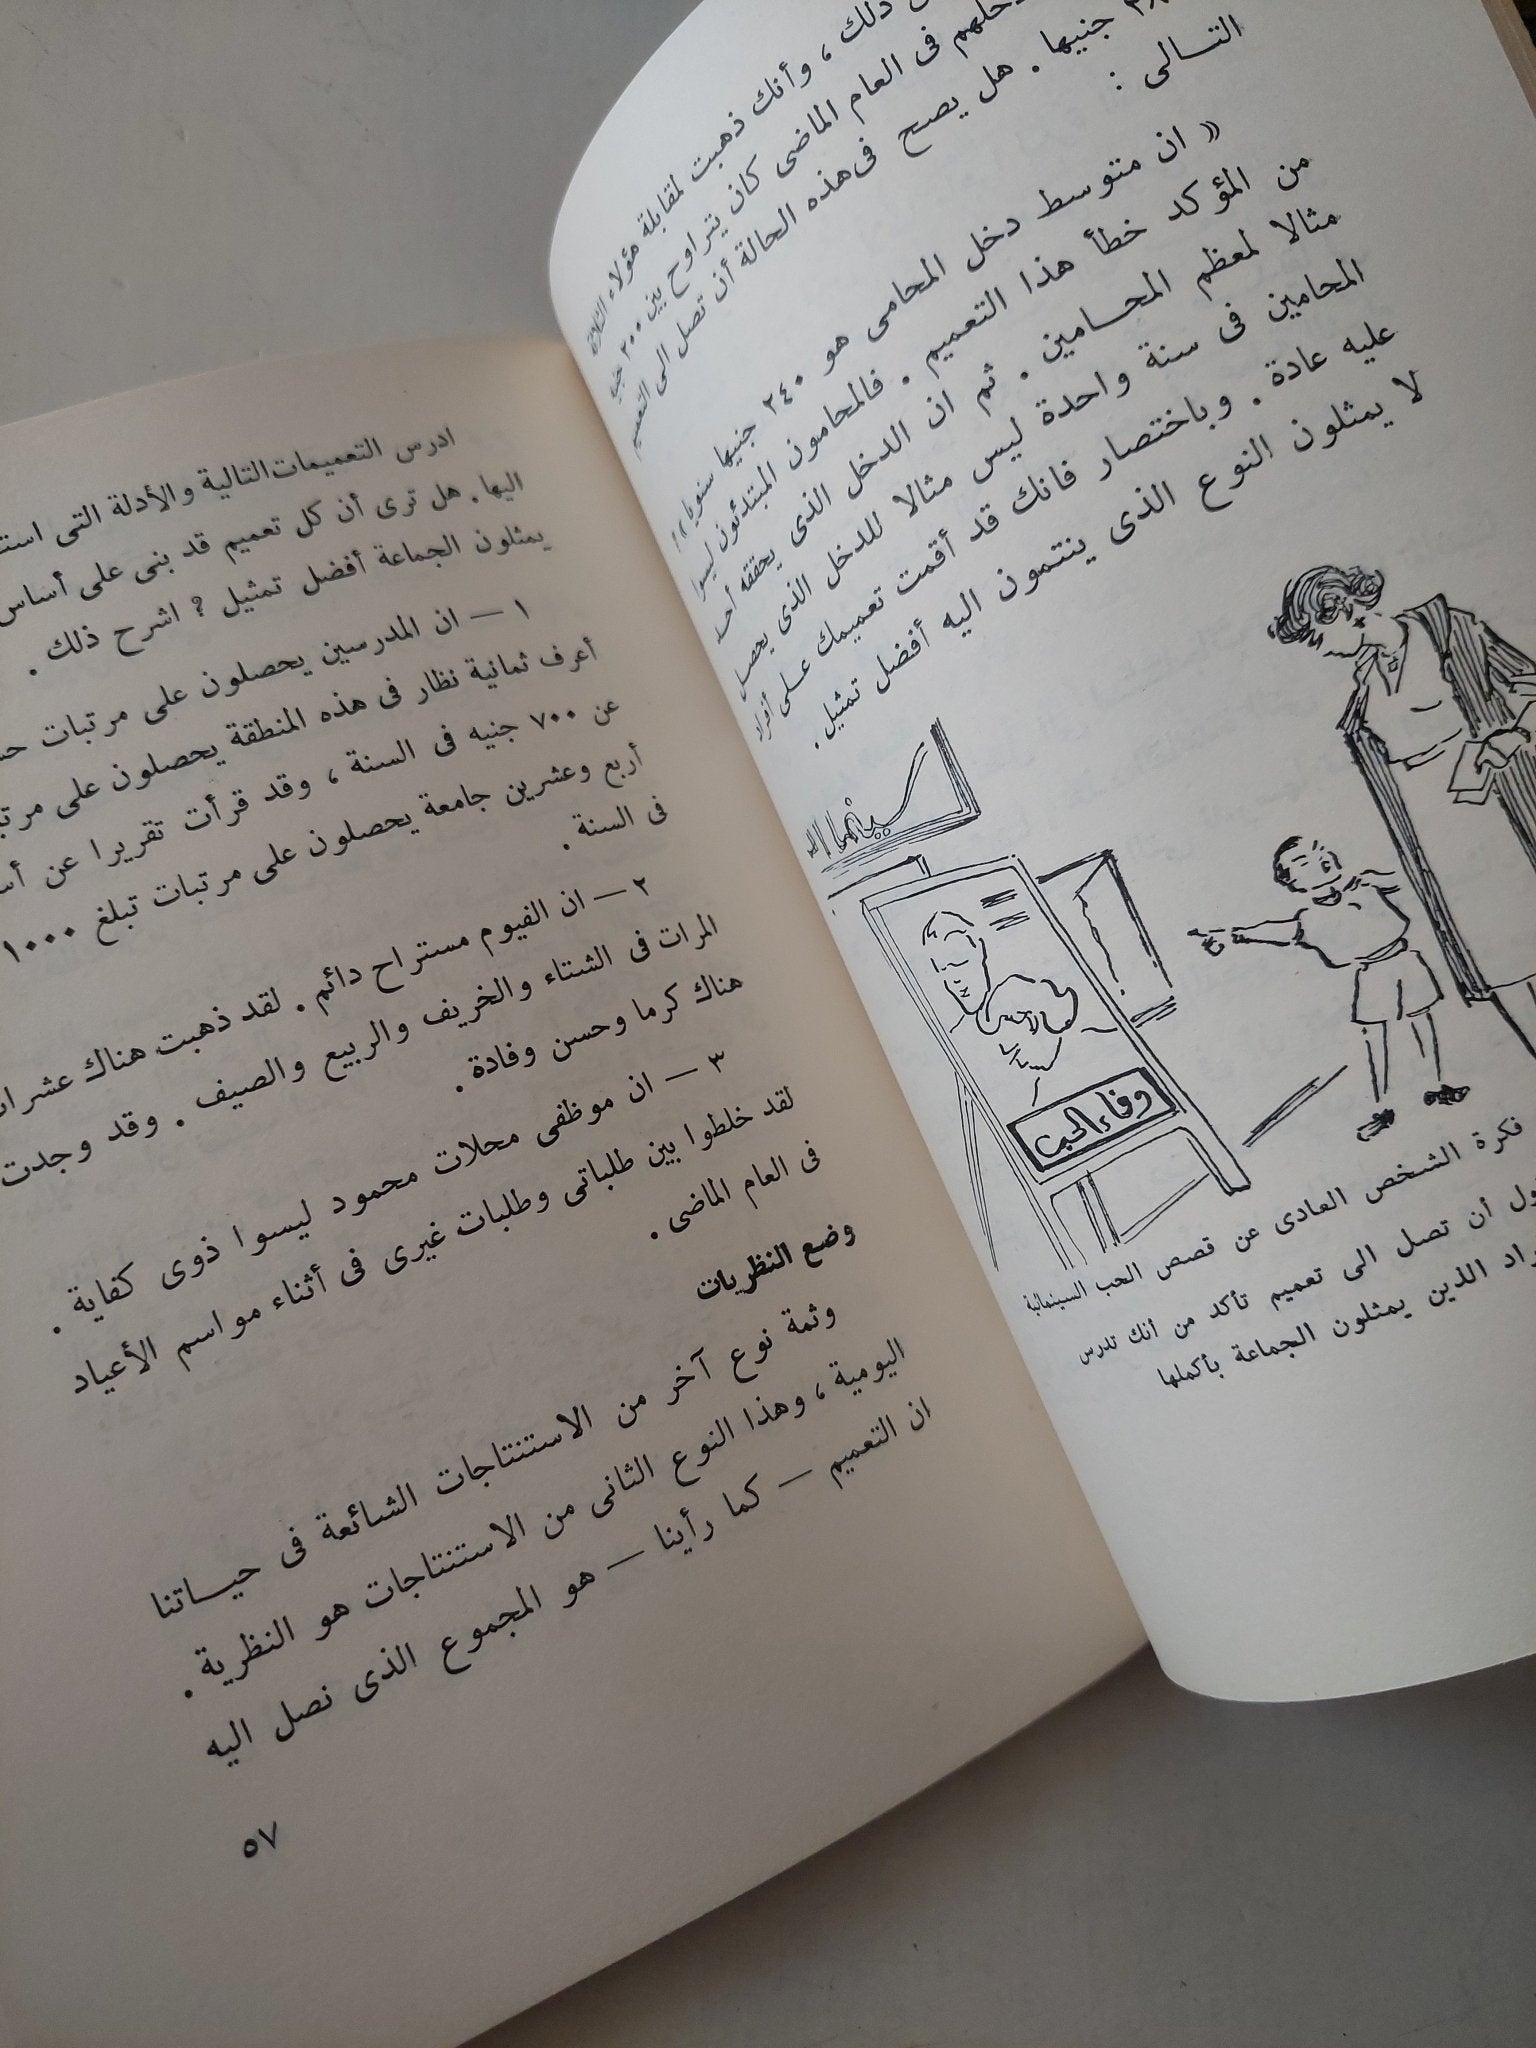 ذلك ، وأنك ذهبت لمقابلة هؤلاء الثلاثة
دخلهم فى العام الماضى كان يتراوح بين ٢٠٠ جنيه
جنيها . هل يصح فى هذه الحالة أن تصل الى التعميم
التالى :
« ان متوسط دخل المحامى هو ٢٤٠ جنيها سنويا » !
من المؤكد خطأ هذا التعميم . فالمحامون المبتدئون ليسوا
مثالا لمعظم المحامين . ثم ان الدخل الذى يحققه أحد
المحامين فى سنة واحدة ليس مثالا للدخل الذى يحصل
عليه عادة . وباختصار فانك قد أقمت تعميمك على أفراد
لا يمثلون النوع الذى ينتمون اليه أفضل تمثيل .
سينما
وفاء الحب
فكرة الشخص العادى عن قصص الحب السينمائية
أن تصل الى تعميم تأكد من أنك تدرس
الذين يمثلون الجماعة بأكملها
ادرس التعميمات التالية والأدلة التى
اليها . هل ترى أن كل تعميم قد بنى على أساس
يمثلون الجماعة أفضل تمثيل ؟ اشرح ذلك .
١ — ان المدرسين يحصلون على مرتبات
أعرف ثمانية نظار فى هذه المنطقة يحصلون على
عن ٧٠٠ جنيه فى السنة ، وقد قرأت تقريرا عن
أربع وعشرين جامعة يحصلون على مرتبات تبلغ ١٠٠٠
فى السنة .
٢ — ان الفيوم مستراح دائم . لقد ذهبت هناك عشرات
المرات فى الشتاء والخريف والربيع والصيف . وقد وجدت
هناك كرما وحسن وفادة .
٣ — ان موظفى محلات محمود ليسوا ذوى كفاية .
لقد خلطوا بين طلباتى وطلبات غيرى فى أثناء مواسم الأعياد
فى العام الماضى .
وضع النظريات
وثمة نوع آخر من الاستنتاجات الشائعة فى حياتنا
اليومية ، وهذا النوع الثانى من الاستنتاجات هو النظرية .
ان التعميم — كما رأينا — هو المجموع الذى نصل اليه
٥٧